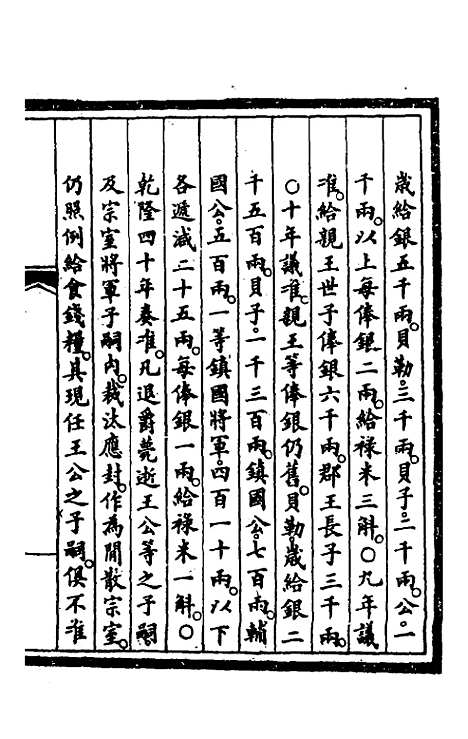 歲給銀五千兩。貝勒。三千兩。貝子。二千兩。公。一
千兩。以上每俸銀二兩。給祿米三斛。○九年議
准。給親王世子俸銀六千兩。郡王長子三千兩。
○十年議准。親王等俸銀仍舊。貝勒。歲給銀二
千五百兩。貝子。一千三百兩。鎮國公。七百兩。輔
國公。五百兩。一等鎮國將軍。四百一十兩。以下
各遞減二十五兩。每俸銀一兩。給祿米一斛。○
乾隆四十年奏准。凡退爵薨逝王公等之子嗣
及宗室將軍子嗣內。裁汰應封。作為閒散宗室。
仍照例給食錢糧。其現任王公之子嗣。俱不准